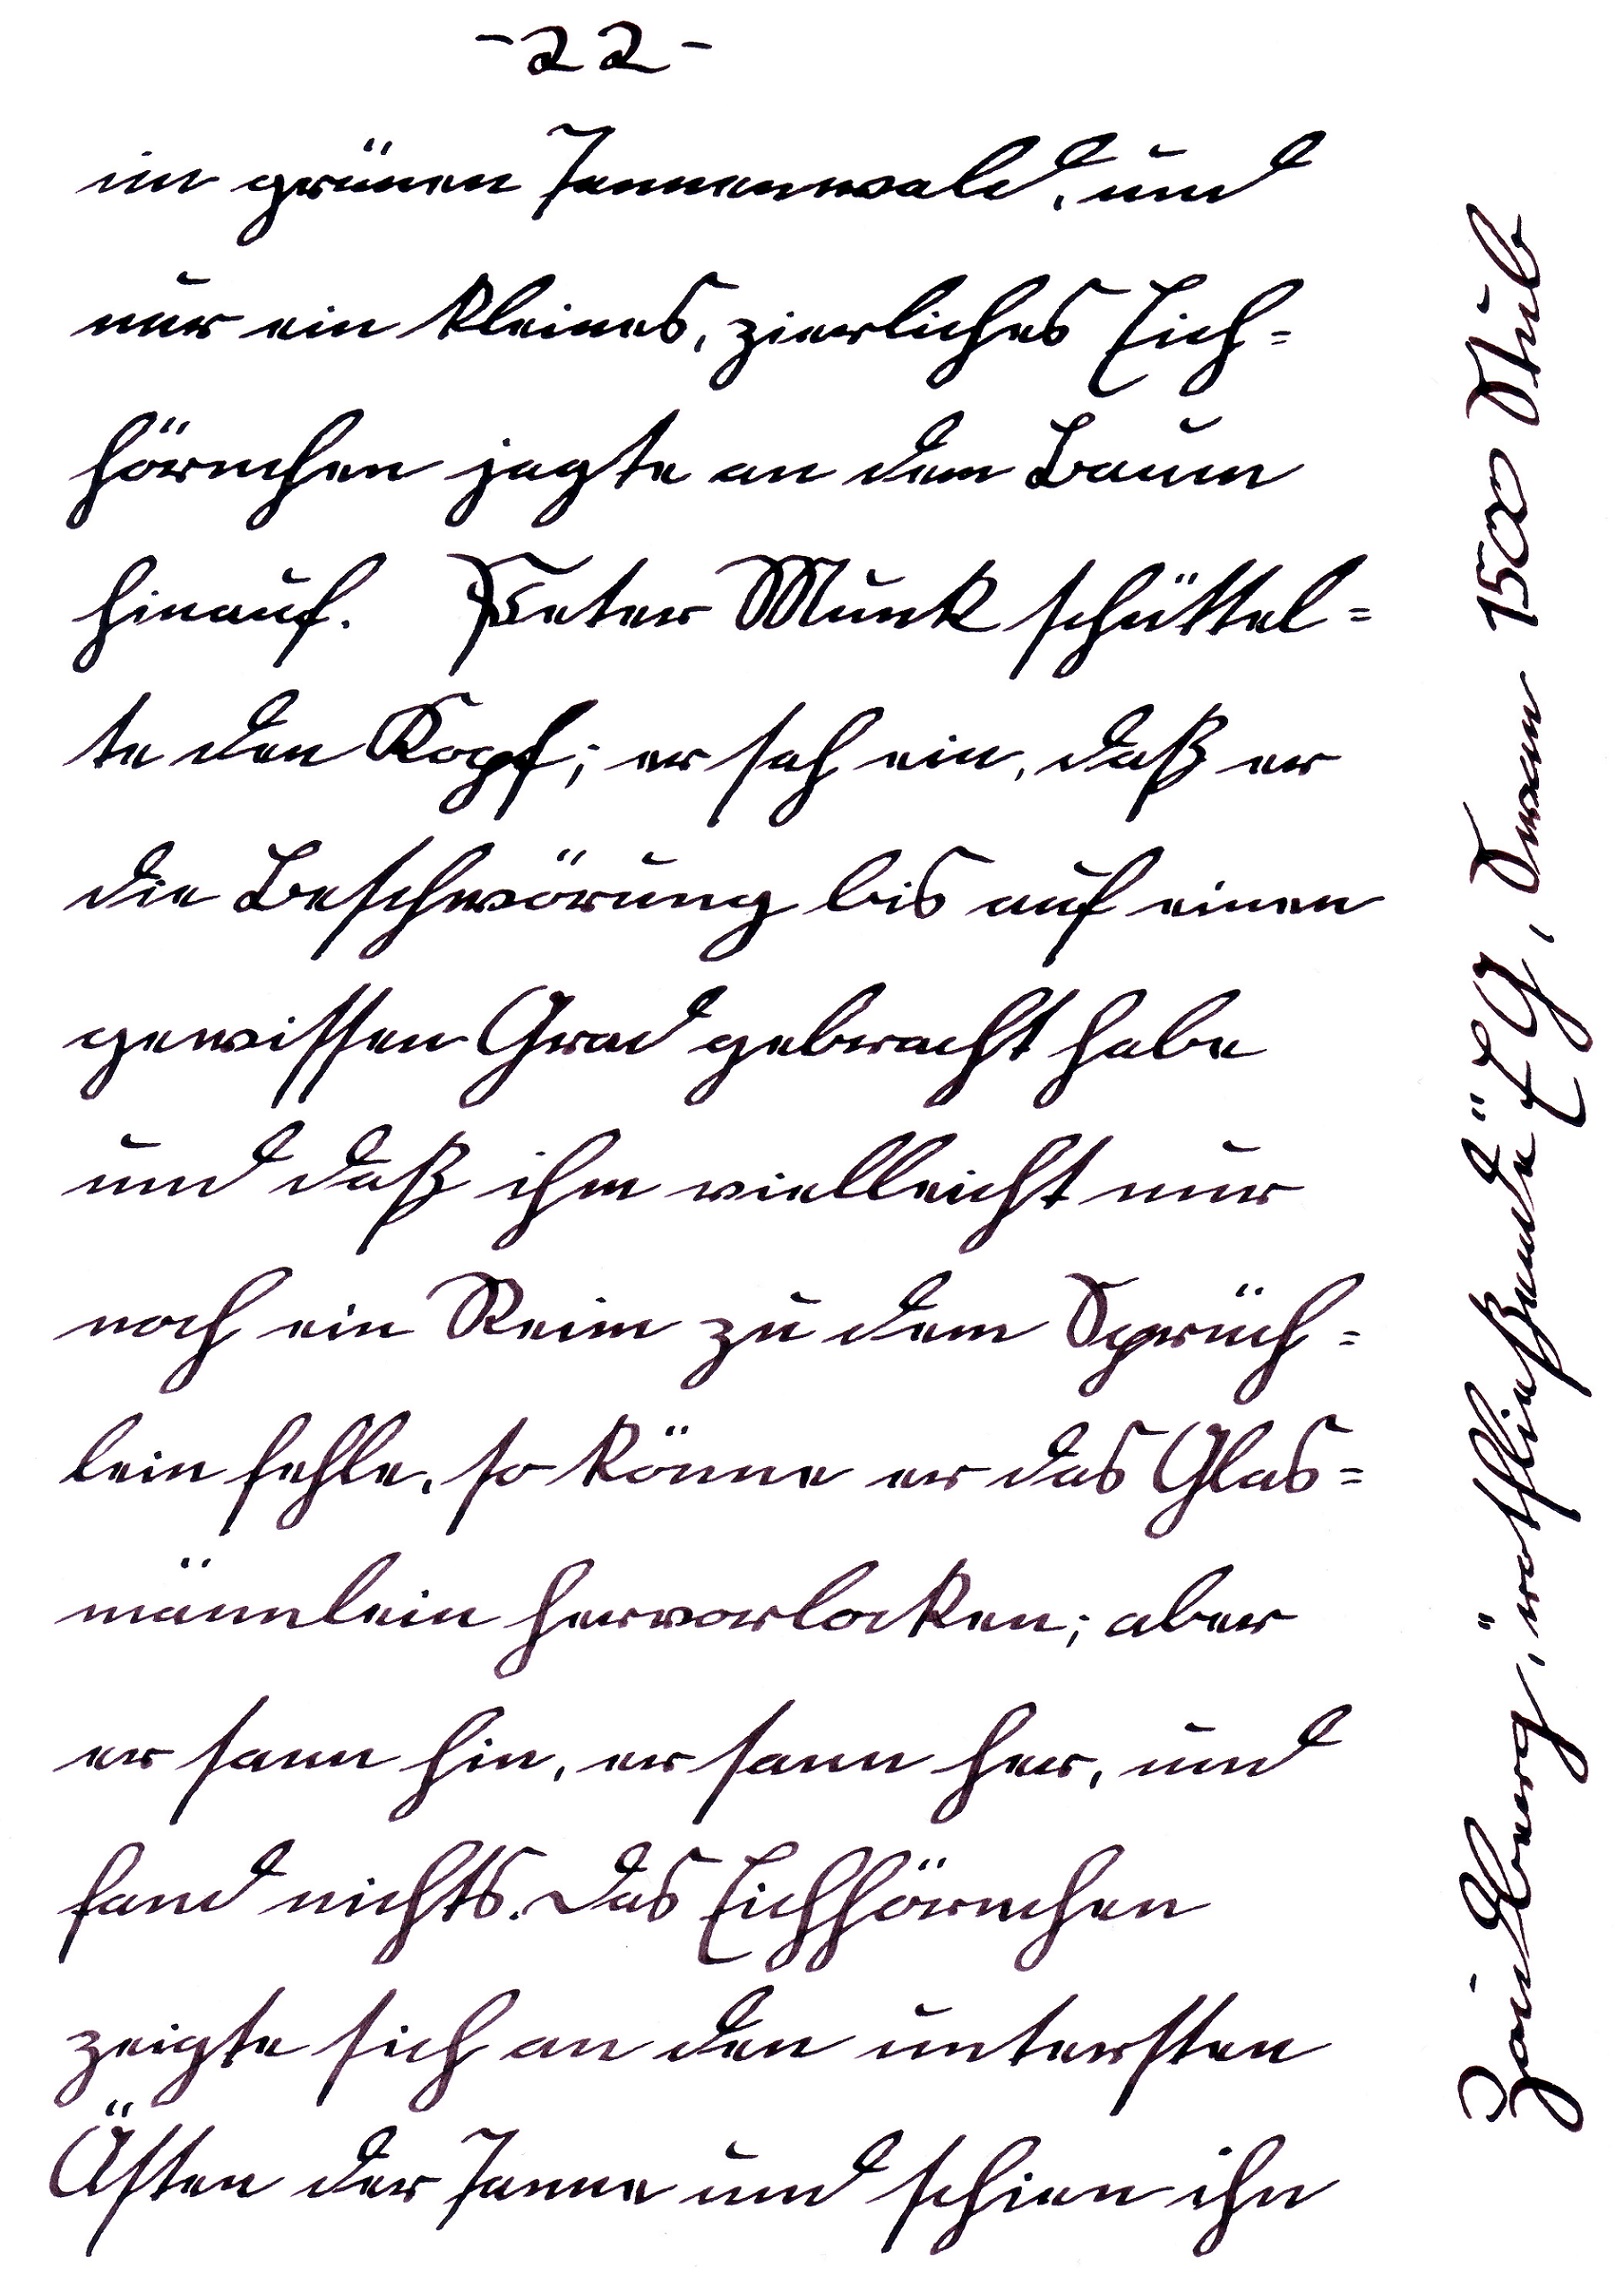 -22-
im grünen Tannenwald, und
nur ein kleines, zierliches Eich=
hörnchen jagte an dem Baum
hinauf. Peter Munk schüttel=
te den Kopf; er sah ein, daß er
die Beschwörung bis auf einen
gewissen Grad gebracht habe
und daß ihm vielleicht nur
noch ein Reim zu dem Sprüch=
lein fehle, so könne er das Glas=
männlein hervorlocken; aber
er sann hin, er sann her, und
fand nichts. Das Eichhörnchen
zeigte sich an den untersten
Ästen der Tanne und schien ihn
"rotfließende" EG, 1500 Stub